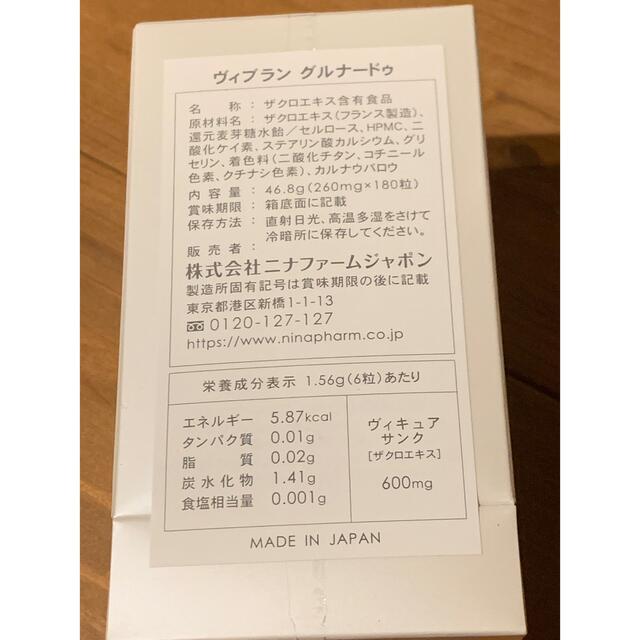 ヴィブラン グルナードゥ
名称：ザクロエキス含有食品
原材料名：ザクロエキス（フランス製造）、
還元麦芽糖水飴／セルロース、HPMC、二
酸化ケイ素、ステアリン酸カルシウム、グリ
セリン、着色料（二酸化チタン、コチニール
色素、クチナシ色素）、カルナウバロウ
内容量：46.8g（260mg×180粒）
賞味期限：箱底面に記載
保存方法：直射日光、高温多湿をさけて
冷暗所に保存してください。
販売者：
株式会社ニナファームジャポン
製造所固有記号は賞味期限の後に記載
東京都港区新橋1-1-13
0120-127-127
https://www.ninapharm.co.jp
栄養成分表示 1.56g（6粒）あたり
エネルギー 5.87kcal
タンパク質 0.01g
脂質 0.02g
炭水化物 1.41g
食塩相当量 0.001g
ヴィキュア
サンク
［ザクロエキス］
600mg
MADE IN JAPAN